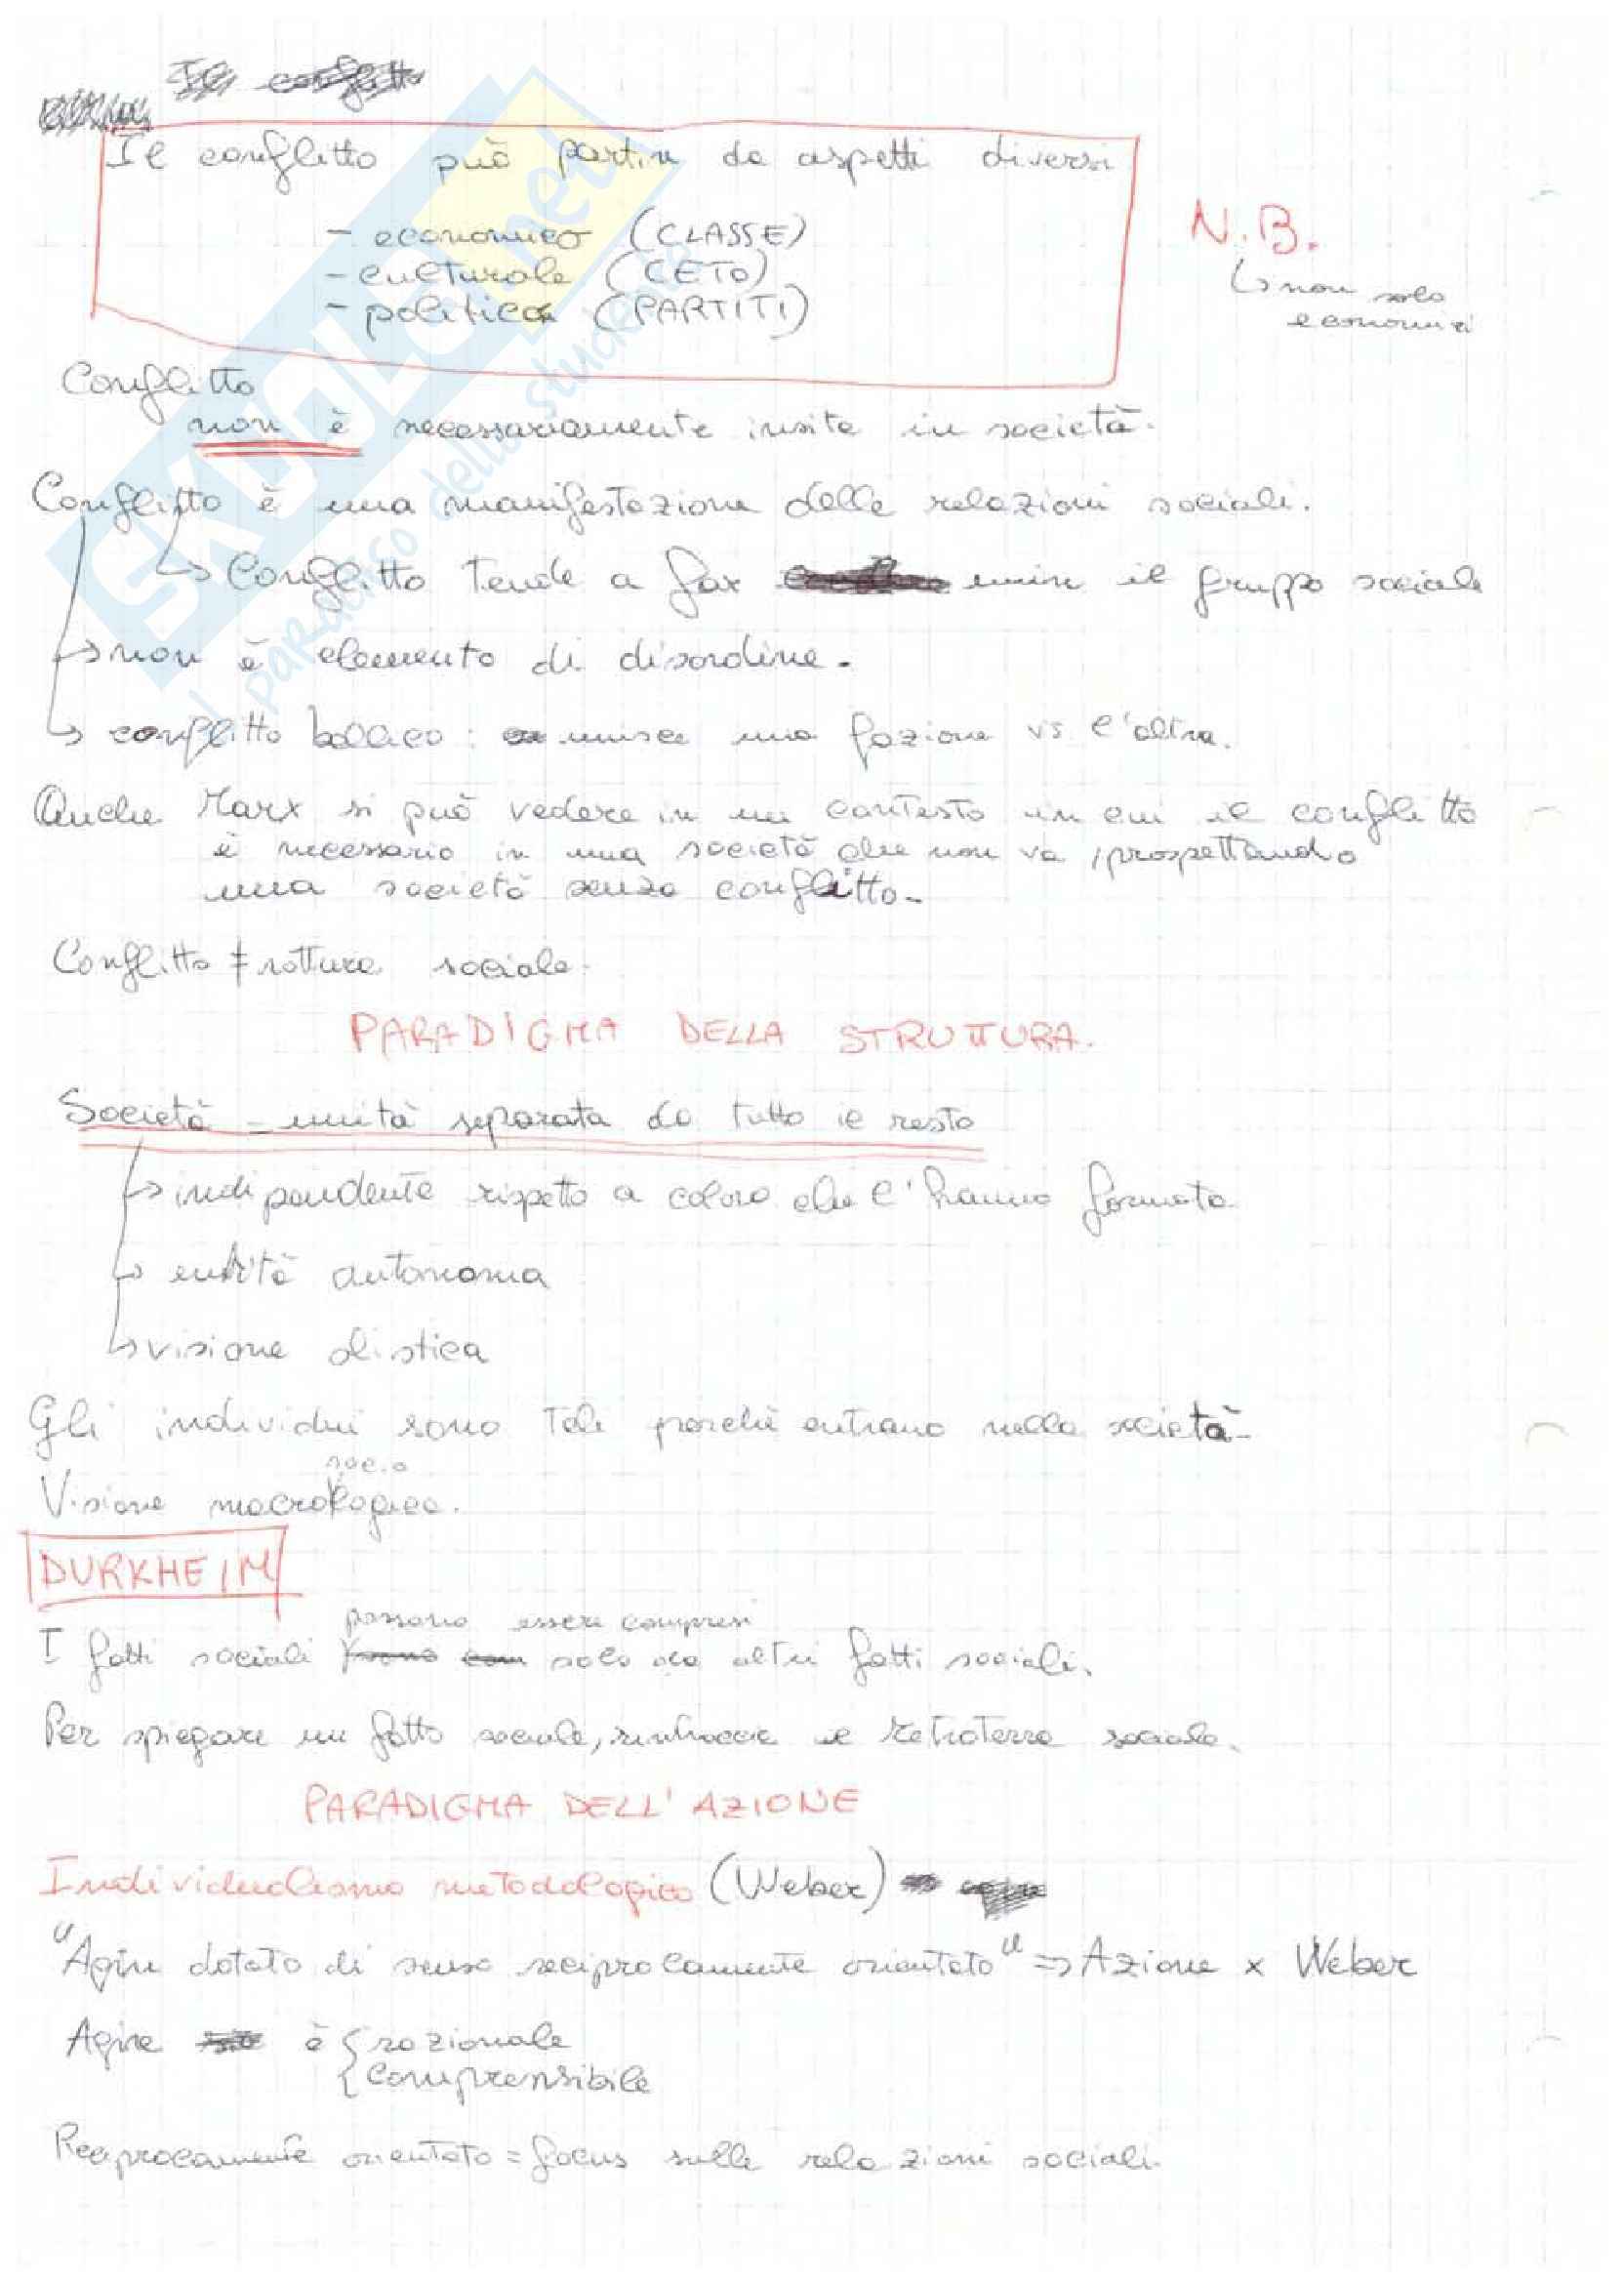 Il conflitto può partire da aspetti diversi
- economico (CLASSE)
- culturale (CETO)
- politico (PARTITI)
N.B.
↳ non solo
economici
Conflitto
non è necessariamente insito in società.
Conflitto è una manifestazione delle relazioni sociali.
↳ Conflitto tende a far unire il gruppo sociale
↳ non è elemento di disordine.
↳ conflitto bellico: unisce una fazione vs l'altra.
Anche Marx si può vedere in un contesto in cui il conflitto
è necessario in una società che non va, prospettando
una società senza conflitto.
Conflitto ≠ rottura sociale.
PARADIGMA DELLA STRUTTURA.
Società = unità separata da tutto il resto
↳ indipendente rispetto a coloro che l'hanno formata
↳ entità autonoma
↳ visione olistica
Gli individui sono tali perché entrano nella società.
Visione macrosociologica.
DURKHEIM
I fatti sociali possono essere compresi solo da altri fatti sociali.
Per spiegare un fatto sociale, rintraccia il retroterra sociale.
PARADIGMA DELL'AZIONE
Individualismo metodologico (Weber)
"Agire dotato di senso reciprocamente orientato" => Azione x Weber
Agire è { razionale
{ comprensibile
Reciprocamente orientato = focus sulle relazioni sociali.
SKUOLA.net
il paradiso dello studente